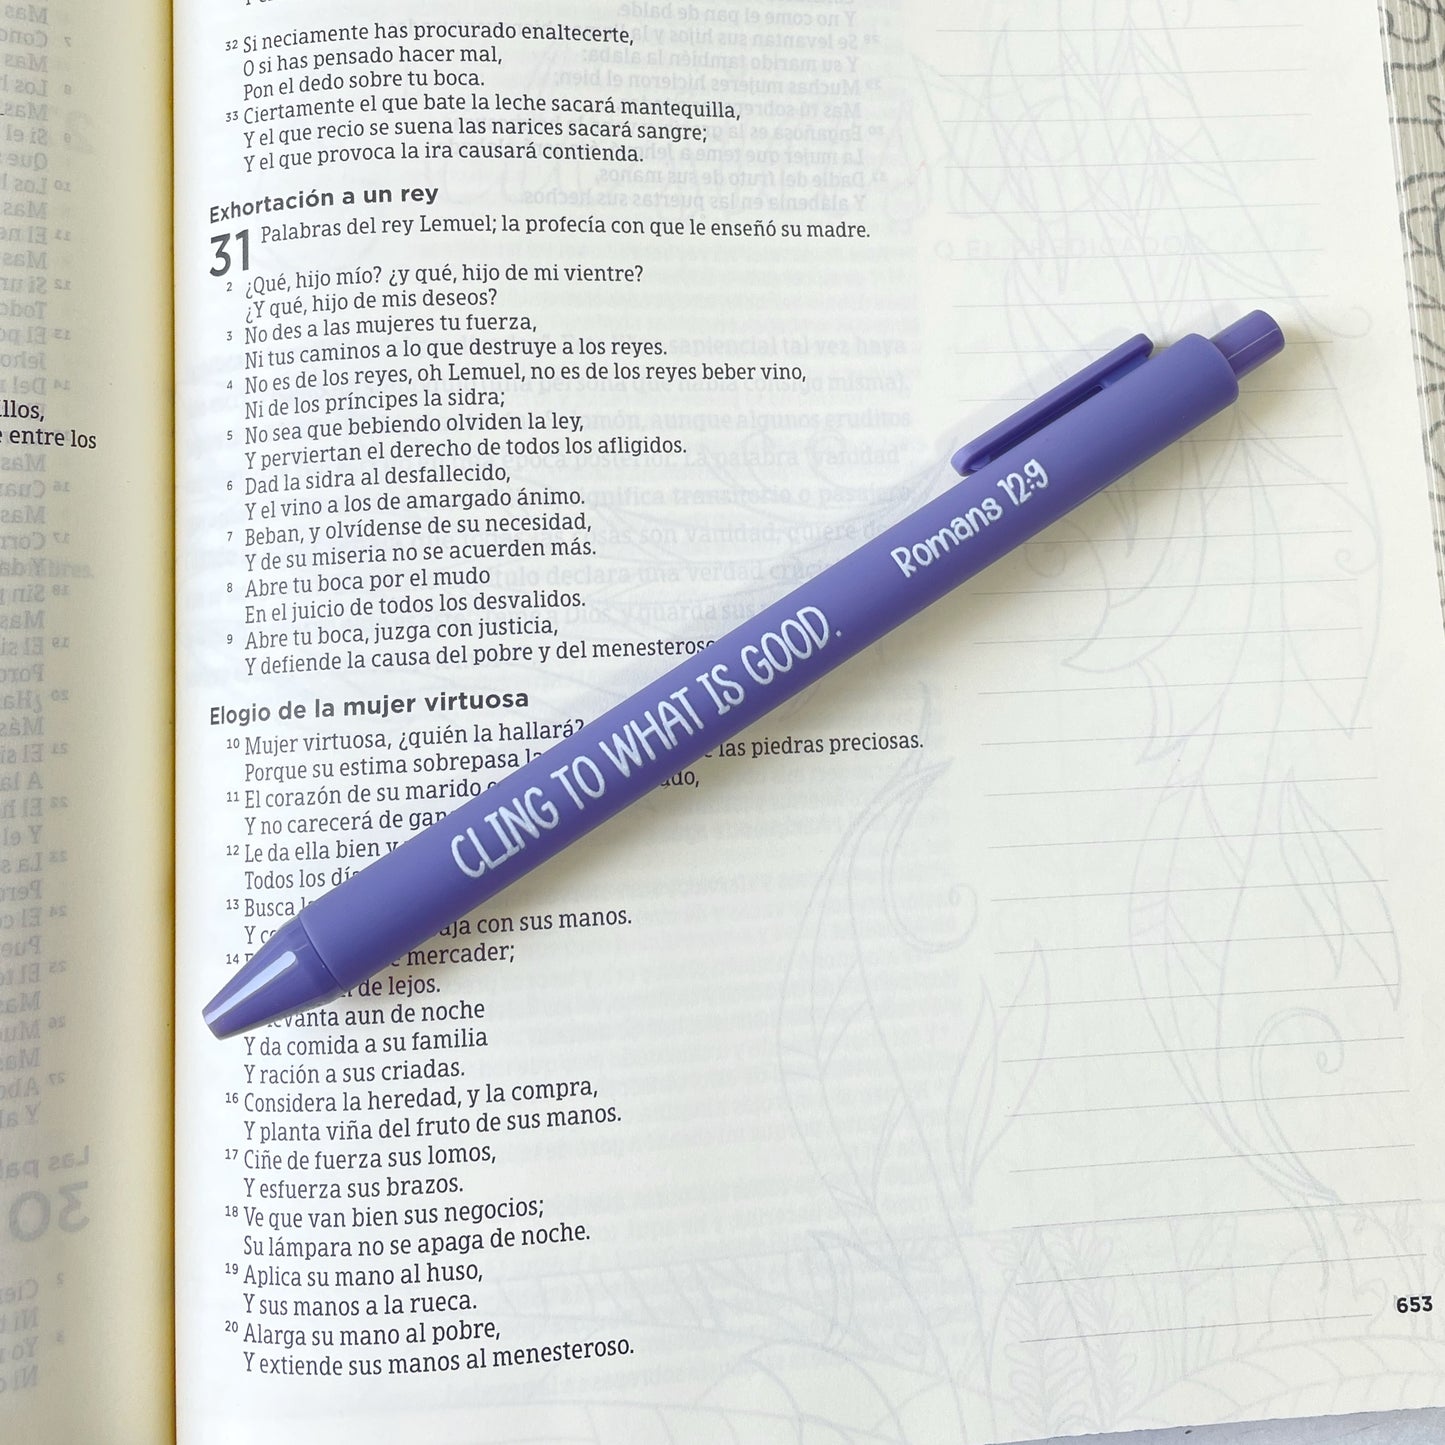 32 Si neciamente has procurado enaltecerte,
O si has pensado hacer mal,
Pon el dedo sobre tu boca.
33 Ciertamente el que bate la leche sacará mantequilla,
Y el que recio se suena las narices sacará sangre;
Y el que provoca la ira causará contienda.
Exhortación a un rey
31 Palabras del rey Lemuel; la profecía con que le enseñó su madre.
2 ¿Qué, hijo mío? ¿y qué, hijo de mi vientre?
¿Y qué, hijo de mis deseos?
3 No des a las mujeres tu fuerza,
Ni tus caminos a lo que destruye a los reyes.
4 No es de los reyes, oh Lemuel, no es de los reyes beber vino,
Ni de los príncipes la sidra;
5 No sea que bebiendo olviden la ley,
Y perviertan el derecho de todos los afligidos.
6 Dad la sidra al desfallecido,
Y el vino a los de amargado ánimo.
7 Beban, y olvídense de su necesidad,
Y de su miseria no se acuerden más.
8 Abre tu boca por el mudo
En el juicio de todos los desvalidos.
9 Abre tu boca, juzga con justicia,
Y defiende la causa del pobre y del
Elogio de la mujer virtuosa
10 Mujer virtuosa, ¿quién la hallará?
Porque su estima sobrepasa las piedras preciosas.
11 El corazón de su marido
Y no carecerá de
12 Le da ella bien y
Todos los
13 Busca
Y con sus manos.
14 mercader;
de lejos.
aun de noche
Y da comida a su familia
Y ración a sus criadas.
16 Considera la heredad, y la compra,
Y planta viña del fruto de sus manos.
17 Ciñe de fuerza sus lomos,
Y esfuerza sus brazos.
18 Ve que van bien sus negocios;
Su lámpara no se apaga de noche.
19 Aplica su mano al huso,
Y sus manos a la rueca.
20 Alarga su mano al pobre,
Y extiende sus manos al menesteroso.
653
entre los
CLING TO WHAT IS GOOD.
Romans 12:9